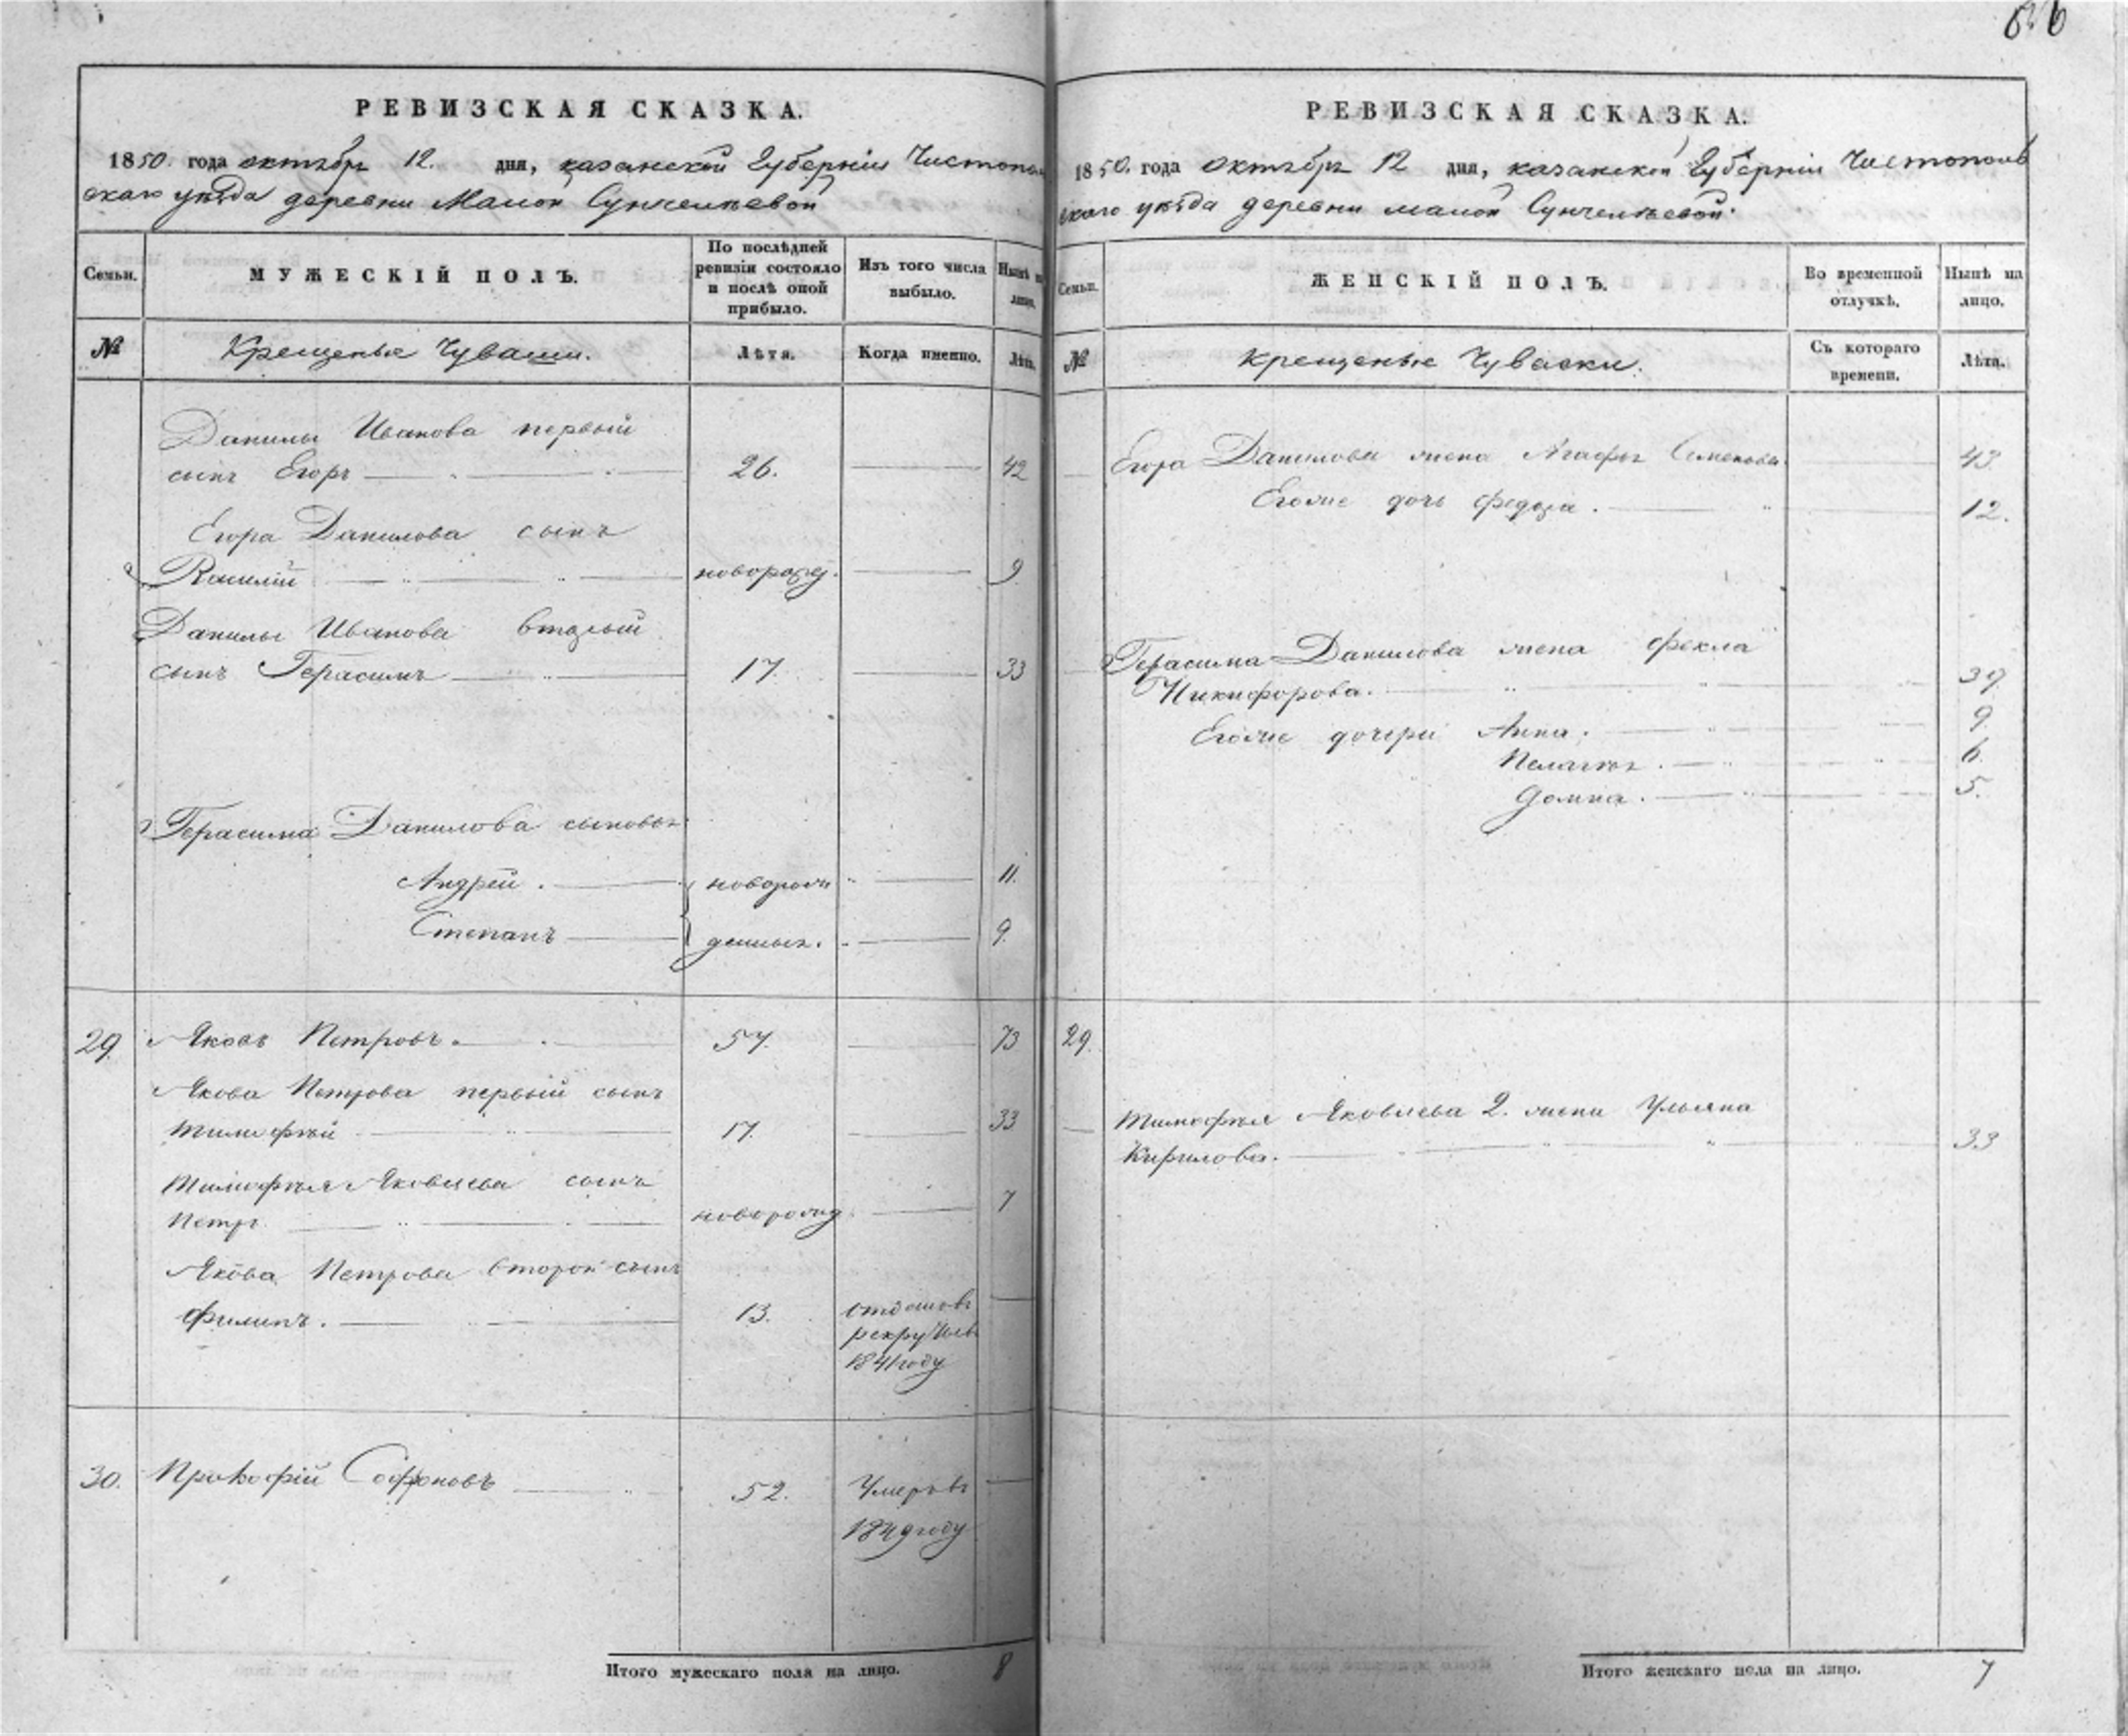 РЕВИЗСКАЯ СКАЗКА.
1850. года октябр 12. дня, казанской Губерніи Чистопол
скаго уѣзда деревни Малой Сунчелѣевой
Семьи.
МУЖЕСКІЙ ПОЛЪ.
По послѣдней
ревизіи состояло
и послѣ оной
прибыло.
Изъ того числа
выбыло.
Нынѣ на
лицо.
№
Крещеные Чуваши.
Лѣта.
Когда именно.
Лѣта.
Данилы Иванова первый
сынъ Егоръ 26. 42
Егора Данилова сынъ
Василій новорожд. 9
Данилы Иванова вторый
сынъ Герасимъ 17. 33
Герасима Данилова сыновья
Андрей. новорож 11.
Степанъ денных. 9.
29. Яковъ Петровъ. 57. 73
Якова Петрова первый сынъ
Тимофѣй 17. 33
Тимофѣя Яковлева сынъ
Петръ новорожд. 7
Якова Петрова второй сынъ
Филипъ. 13. отданъ въ
рекруты въ
1841 году
30. Прокофій Софроновъ 52. Умеръ въ
1849 году
Итого мужескаго пола на лицо. 8
РЕВИЗСКАЯ СКАЗКА.
1850. года октябрь 12 дня, казанской Губерніи Чистополь
скаго уѣзда деревни малой Сунчелѣевой.
Семьи.
ЖЕНСКІЙ ПОЛЪ.
Во временной
отлучкѣ.
Нынѣ на
лицо.
№
крещеные Чуваски.
Съ котораго
времени.
Лѣта.
Егора Данилова жена Агафья Семенова 43.
Егоже дочь Федора. 12.
Герасима Данилова жена Фекла
Никифорова. 37.
Егоже дочери Анна. 9.
Пелагея. 6.
Домна. 5.
29.
Тимофѣя Яковлева 2. жена Ульяна
Кирилова. 33
Итого женскаго пола на лицо. 7